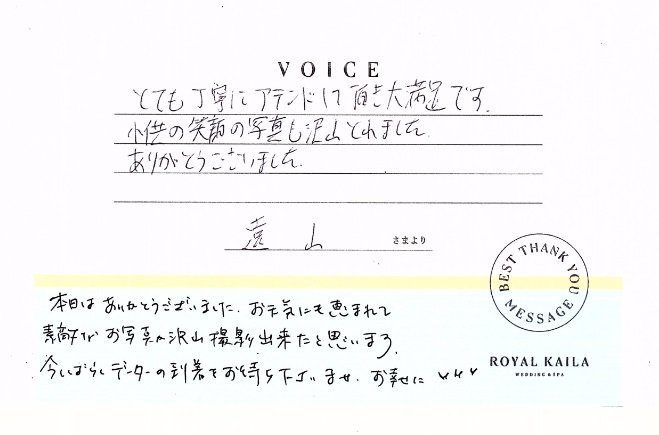 VOICE
とても丁寧にアテンドして頂き大満足です。
小供の笑顔の写真も沢山とれました。
ありがとうございました。
遠山 さまより
BEST THANK YOU MESSAGE
本日はありがとうございました。お天気にも恵まれて
素敵なお写真が沢山撮影出来たと思います。
今しばらくデーターの到着をお待ち下さいませ。お幸に
ROYAL KAILA
WEDDING & SPA